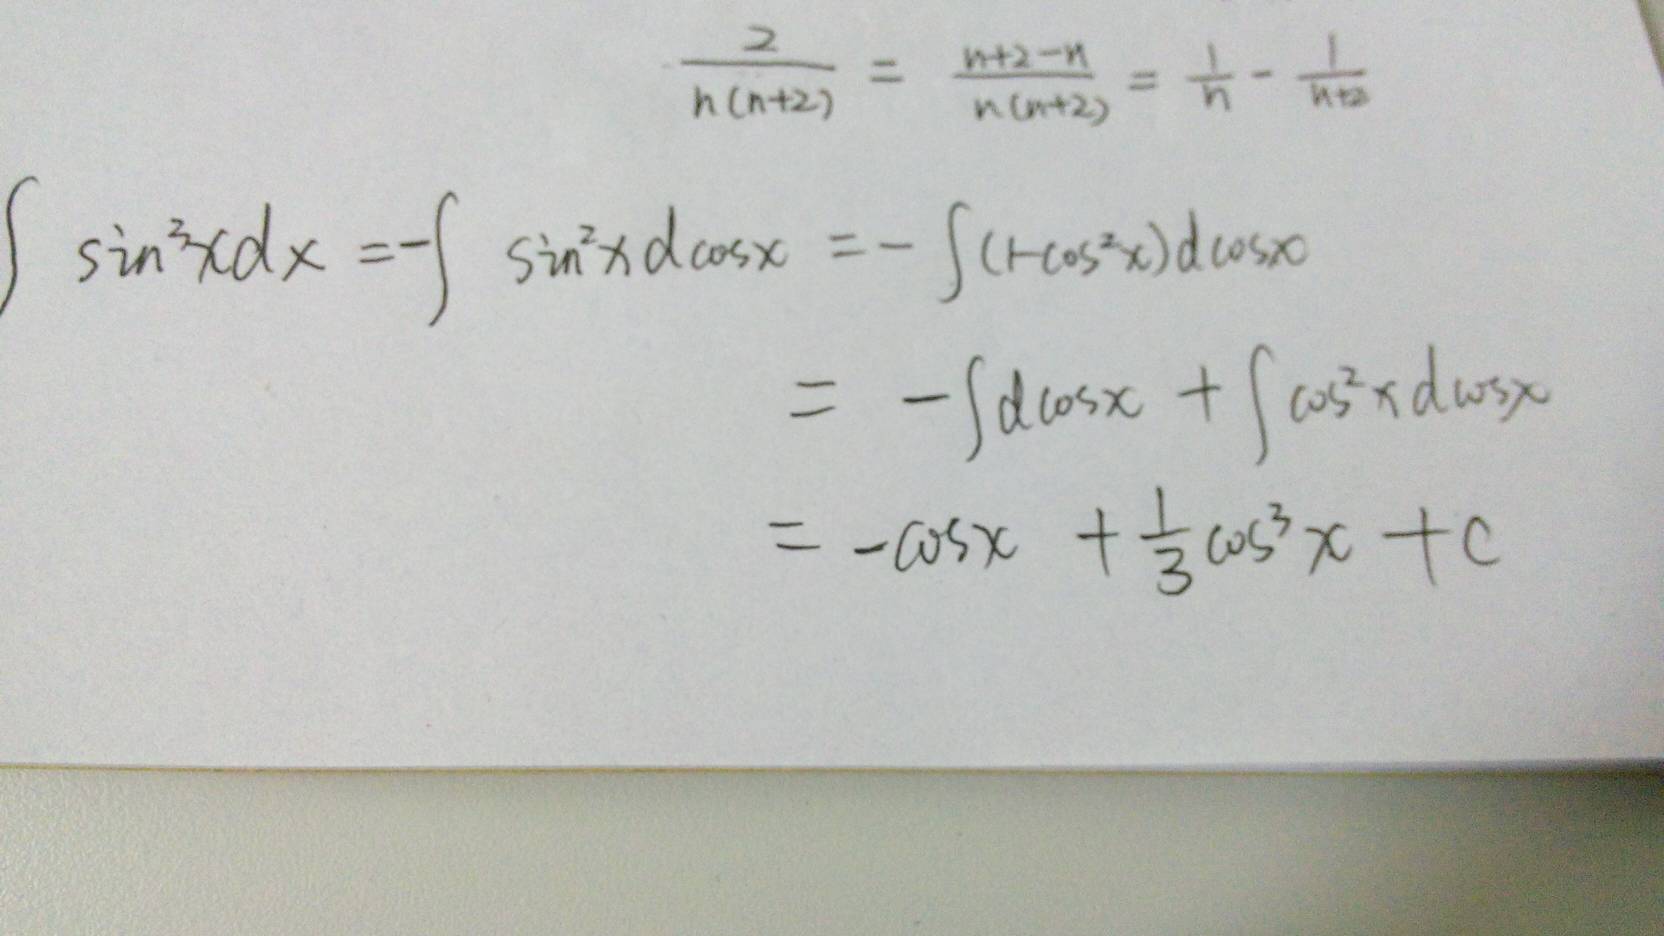 2/(n(n+2)) = (n+2-n)/(n(n+2)) = 1/n - 1/(n+2)
∫ sin³xdx = -∫ sin²x dcosx = - ∫(1-cos²x)dcosx
= -∫dcosx + ∫cos²x dcosx
= -cosx + 1/3 cos³x + c